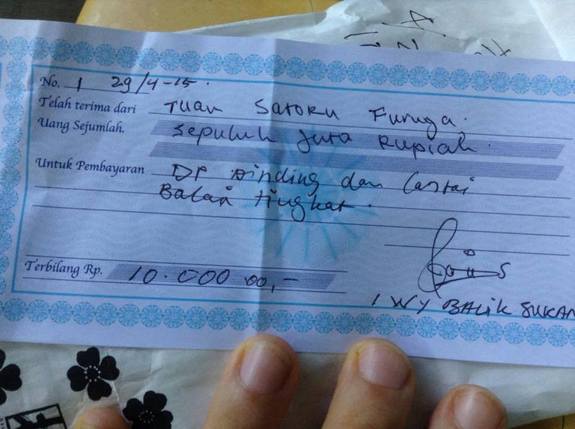 No. 1 29/4-15.
Telah terima dari Tuan Satoru Furuya.
Uang Sejumlah. Sepuluh Juta Rupiah.
Untuk Pembayaran DP Dinding dan Lantai
Balai tingkat.
Terbilang Rp. 10.000 00,-
I WY BALIK SUKAN